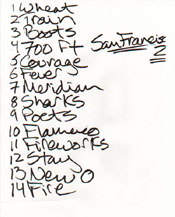 1 Wheat
2 Train
3 Boots
4 700 Ft
San Francisco
2
5 Courage
6 Fever
7 Meridian
8 Sharks
9 Poets
10 Flamenco
11 Fireworks
12 Stay
13 New O
14 Fire